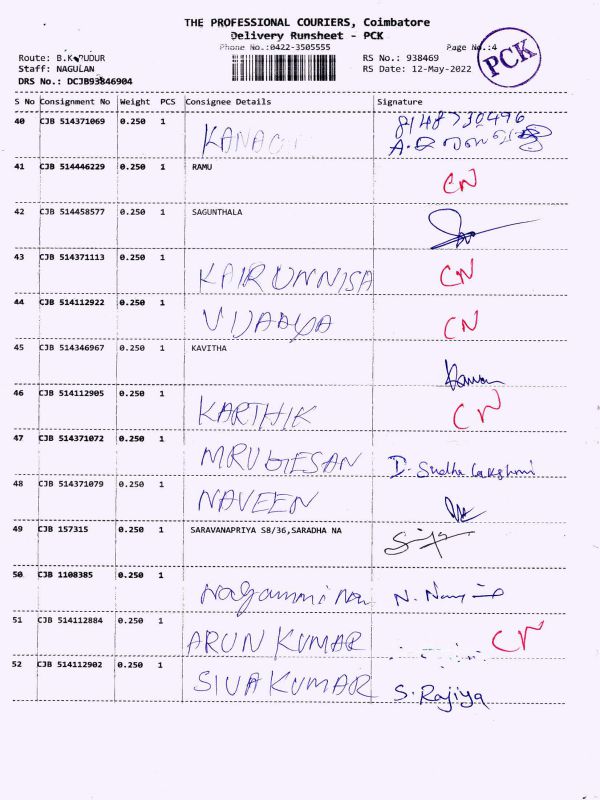 THE PROFESSIONAL COURIERS, Coimbatore
Delivery Runsheet - PCK
Phone No.:0422-3505555 Page No.:4
Route: B.K.PUDUR RS No.: 938469
Staff: NAGULAN RS Date: 12-May-2022
DRS No.: DCJB93846904
PCK
S No Consignment No Weight PCS Consignee Details Signature
40 CJB 514371069 0.250 1 8148730496
KANAG
41 CJB 514446229 0.250 1 RAMU CN
42 CJB 514458577 0.250 1 SAGUNTHALA
43 CJB 514371113 0.250 1 KAIRUNNISA CN
44 CJB 514112922 0.250 1 VIJAAYA CN
45 CJB 514346967 0.250 1 KAVITHA
46 CJB 514112905 0.250 1 KARTHIK CN
47 CJB 514371072 0.250 1 MRUGESAN D. Sudha Lakshmi
48 CJB 514371079 0.250 1 NAVEEN
49 CJB 157315 0.250 1 SARAVANAPRIYA S8/36,SARADHA NA
50 CJB 1108385 0.250 1 Nagammi Nar
51 CJB 514112884 0.250 1 ARUN KUMAR CN
52 CJB 514112902 0.250 1 SIVA KUMAR S. Rajiya